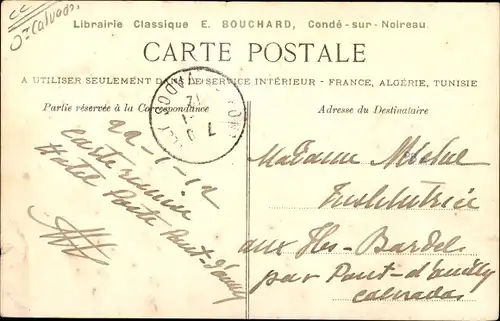 CC
Dt Calvados
Librairie Classique E. BOUCHARD, Condé-sur-Noireau.
CARTE POSTALE
A UTILISER SEULEMENT DANS LE SERVICE INTÉRIEUR - FRANCE, ALGÉRIE, TUNISIE
Partie réservée à la Correspondance
Adresse du Destinataire
22-1-12
Carte
Hotel Poste Pont-d'ouilly
Madame
Institutrice
aux Iles-Bardel
par Pont-d'ouilly
Calvados